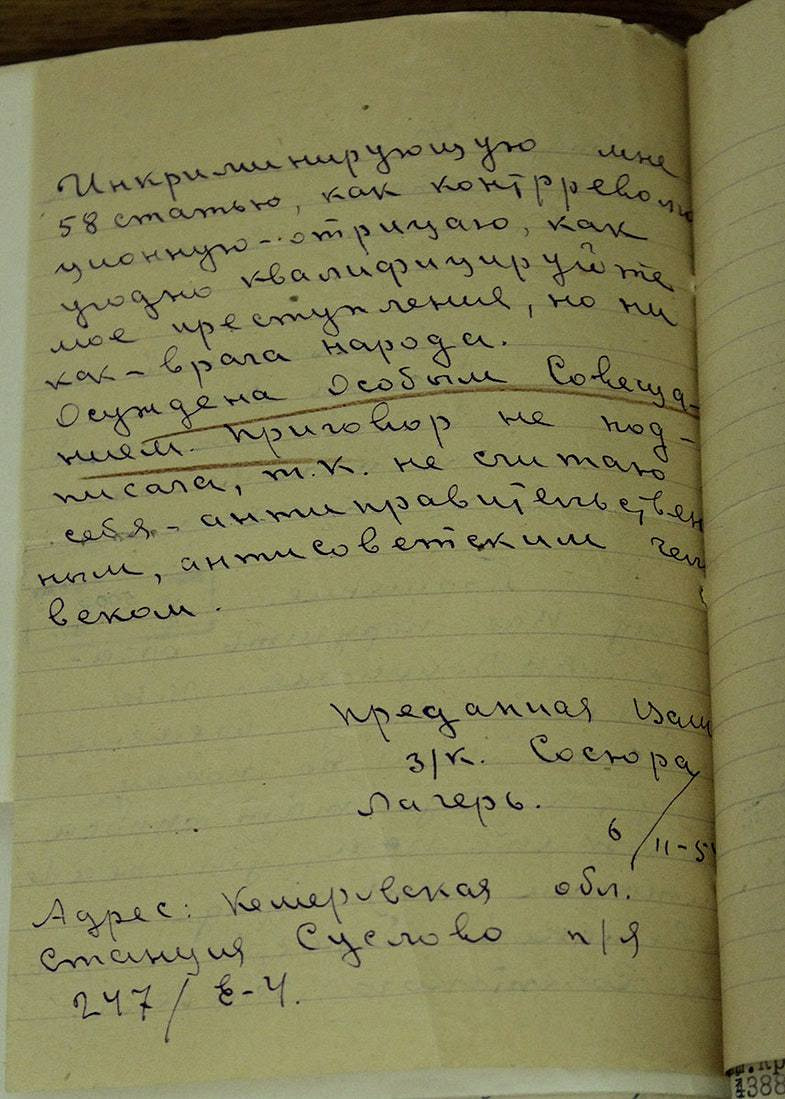 Инкриминирующую мне
58 статью, как контрреволю
ционную - отрицаю, как
угодно квалифицируйте
мое преступление, но ни
как - врага народа.
Осуждена Особым Совеща-
нием. Приговор не под-
писала, т.к. не считаю
себя - антиправительствен
ным, антисоветским чело
веком.
Преданная Вам
з/к. Сосюра
Лагерь.
6/II-5
Адрес: Кемеровская обл.
станция Суслово п/я
247/Е-4.
4388